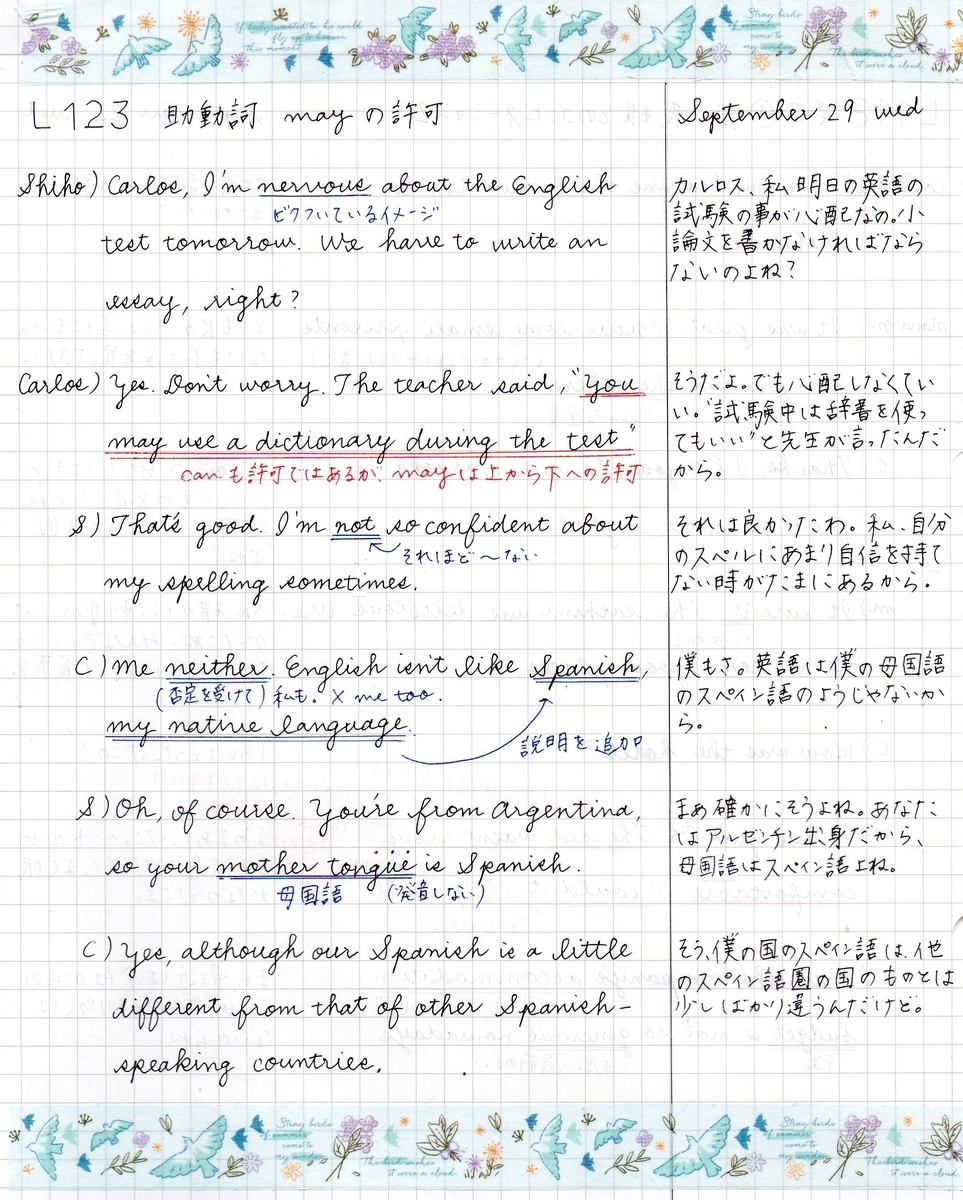 If baby wanted to he could
fly up to heaven
this moment.
Stray birds
of summer
come to
my window
The bird wishes
it were a cloud.
L123 助動詞 may の許可
September 29 wed
Shiho) Carlos, I'm nervous about the English
ビクついているイメージ
test tomorrow. We have to write an
essay, right?
カルロス、私明日の英語の
試験の事が心配なの。小
論文を書かなければなら
ないのよね?
Carlos) Yes. Don't worry. The teacher said, "You
may use a dictionary during the test"
canも許可ではあるが、mayは上から下への許可
そうだよ。でも心配しなくてい
い。"試験中は辞書を使っ
てもいい"と先生が言ったんだ
から。
S) That's good. I'm not so confident about
それほど〜ない
my spelling sometimes.
それは良かったわ。私、自分
のスペルにあまり自信を持て
ない時がたまにあるから。
C) Me neither. English isn't like Spanish,
(否定を受けて) 私も。× me too.
my native language.
説明を追加
僕もさ。英語は僕の母国語
のスペイン語のようじゃないか
ら。
S) Oh, of course. You're from Argentina,
so your mother tongue is Spanish.
母国語 (発音しない)
まあ確かにそうよね。あなた
はアルゼンチン出身だから、
母国語はスペイン語よね。
C) Yes, although our Spanish is a little
different from that of other Spanish-
speaking countries.
そう、僕の国のスペイン語は、他
のスペイン語圏の国のものとは
少しばかり違うんだけど。
Stray birds
of summer
come to
my window
The bird wishes
it were a cloud.
Stray birds
of summer
come to
my window
The bird wishes
it were a cloud.